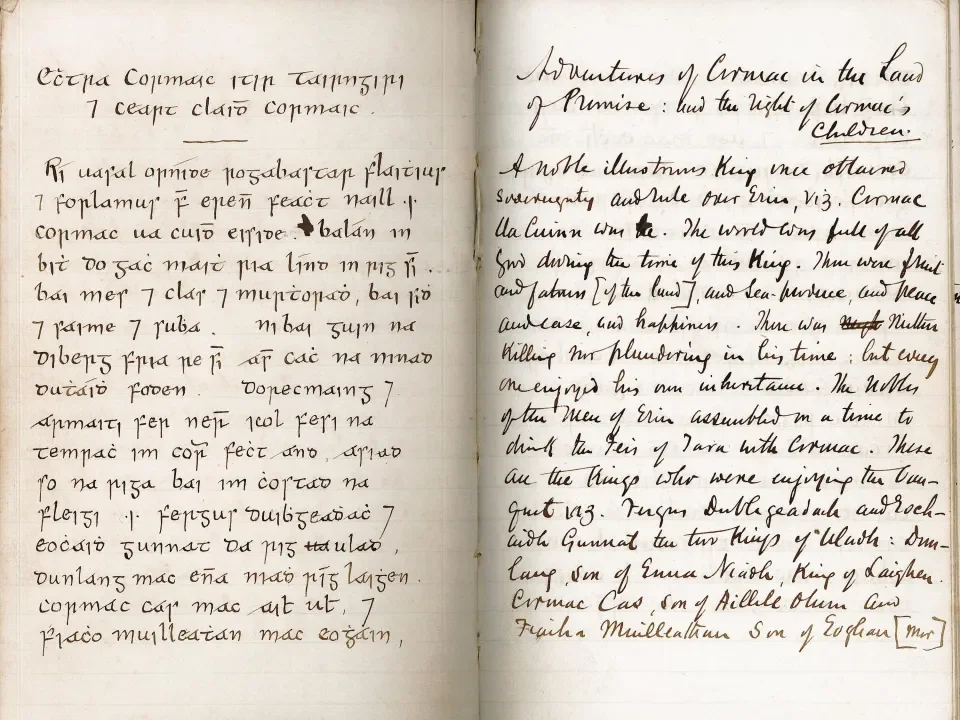 Echtra Cormaic itir Tairngiri
⁊ ceart claiḋ Cormaic.
Ri uasal orniḋe rogabastar flaitius
⁊ forlamus f̄ ereñ feaċt naill .i.
Cormac ua cuiḋ eiside. balán in
biṫ do gaċ mait ria linḋ in rig
bai mes ⁊ clas ⁊ murṫoraḋ, bai
⁊ saime ⁊ suba. ni bai guin na
diberg fria re ar caċ na innaḋ
dutaiḋ foden. dorecmaing ⁊
armaiti fer nereñ icol fesi na
tempaċ im feċt anḋ, asiad
so na riga bai im ċostaḋ na
fleiḋi .i. fergus duibgeaḋaċ ⁊
eoċaiḋ gunnat da rig ulaḋ,
dunlang mac eña niaḋ ríg laiġen.
Cormac cas mac ail ul, ⁊
fiaċḋ muilleatan mac eoġain,
Adventures of Cormac in the Land
of Promise: and the right of Cormac's
Children.
A noble illustrious King once obtained
sovereignty and rule over Erin, viz. Cormac
Ua Cuinn was he. The world was full of all
good during the time of this King. There were fruit
and fatness [of the land], and sea-produce, and peace
and ease, and happiness. There was Neither
Killing nor plundering in his time; but every
one enjoyed his own inheritance. The Nobles
of the Men of Erin assembled on a time to
drink the Feis of Tara with Cormac. These
are the Kings who were enjoying the ban-
quet viz. Fergus Dubhgeadach and Eoch-
aidh Gunnat the two Kings of Uladh: Dun-
lang, son of Enna Niadh, King of Laighen.
Cormac Cas, son of Aillile Olum and
Fiacha Muilleathan Son of Eoghan [mor]